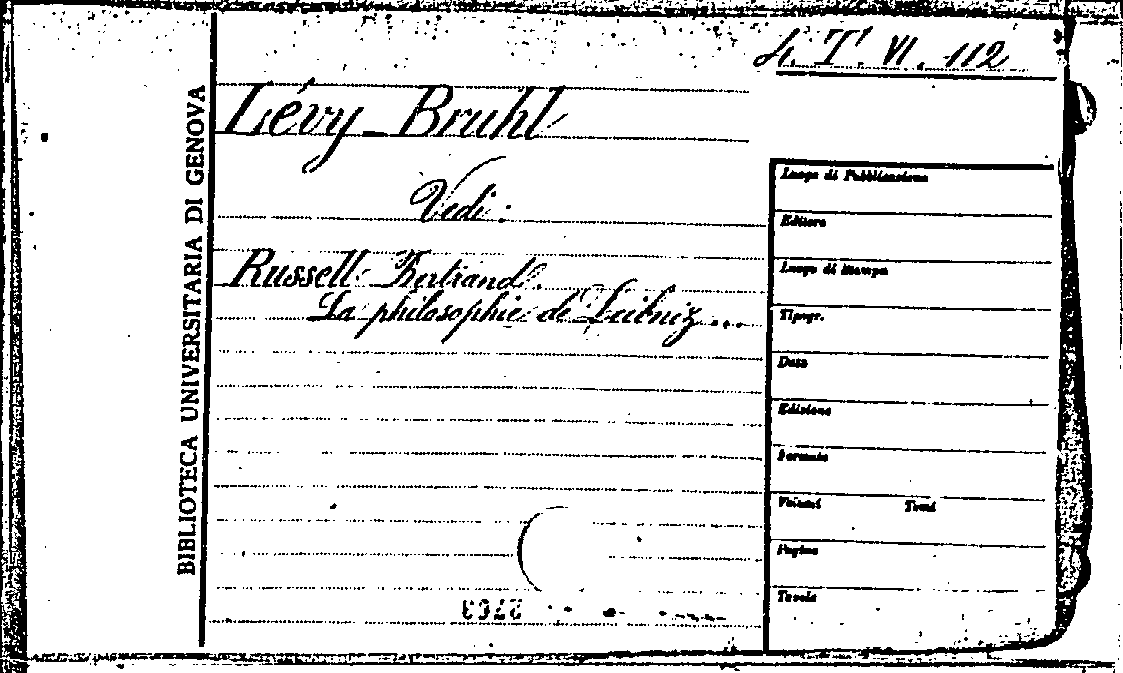 4. T. VI. 112
Lévy-Bruhl
Vedi:
Russell Bertrand.
La philosophie de Leibniz...
BIBLIOTECA UNIVERSITARIA DI GENOVA
Luogo di Pubblicazione
Editore
Luogo di Stampa
Tipogr.
Data
Edizione
Formato
Volumi Tomi
Pagine
Tavole